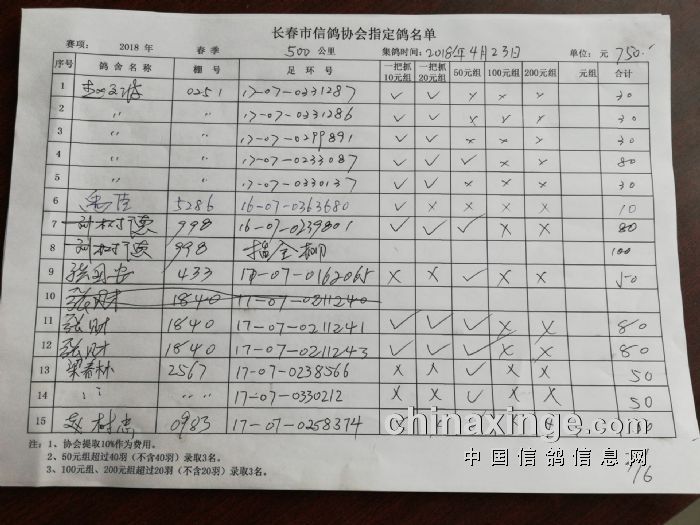 长春市信鸽协会指定鸽名单
赛项: 2018 年 春季 500 公里 集鸽时间: 2018年4月23日 单位: 元 750.
序号 鸽舍名称 棚号 足环号 一把抓10元组 一把抓20元组 50元组 100元组 200元组 元组 合计
1 0251 17-07-0331287 ✓ ✓ × × × 30
2 〃 〃 17-07-0331286 ✓ ✓ × × × 30
3 〃 〃 17-07-0299891 ✓ ✓ × × × 30
4 〃 〃 17-07-0233087 ✓ ✓ ✓ × × 80
5 〃 〃 17-07-0330137 ✓ ✓ × × × 30
6 5286 16-07-0363680 ✓ × × × × 10
7 998 16-07-0239801 ✓ ✓ ✓ × × 80
8 998 指全棚 100
9 433 17-07-0162065 × × ✓ × × 50
10 张财 1840 17-07-0211240
11 张财 1840 17-07-0211241 ✓ ✓ ✓ × × 80
12 张财 1840 17-07-0211243 ✓ ✓ ✓ × × 80
13 梁春林 2567 17-07-0238566 × × ✓ × × 50
14 〃 17-07-0330212 × × ✓ × × 50
15 赵树忠 0983 17-07-0258374
注: 1、协会提取10%作为费用。
2、50元组超过40羽（不含40羽）录取3名。
3、100元组、200元组超过20羽（不含20羽）录取3名。
chinaxinge.com
中国信鸽信息网